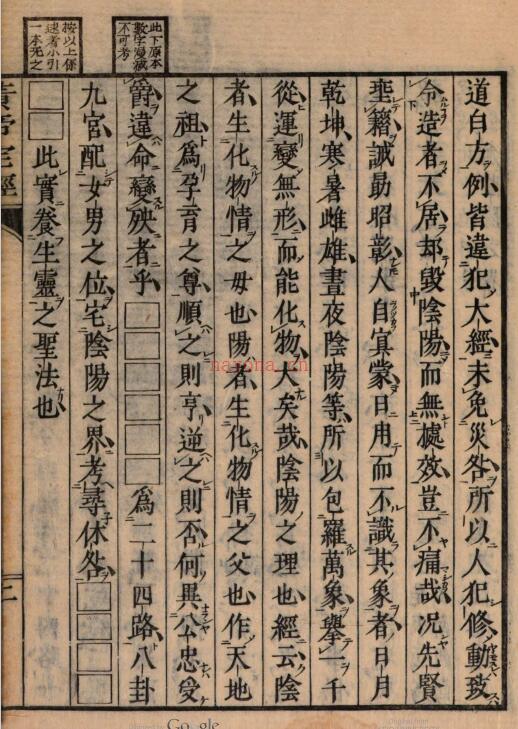 此下原本
數字漫滅
不可考
按以上係
述者小引
一本无之
道白方例皆違犯大經未免災咎所以人犯修動致
令造者不居却毀陰陽而無據效豈不痛哉况先賢
聖籍誠最昭彰人自冥蒙日用而不識其象者日月
乾坤寒暑雌雄晝夜陰陽等所以包羅萬象擧一千
從運變無形而能化物大矣哉陰陽之理也經云陰
者生化物情之母也陽者生化物情之父也作天地
之祖爲孕育之尊順之則亨逆之則否何異公忠受
爵違命變殃者乎□□□□□□爲二十四路八卦
九宮配女男之位宅陰陽之界考尋休咎□□□□
□□此實養生靈之聖法也
黃帝宅經
nayona.cn
Google